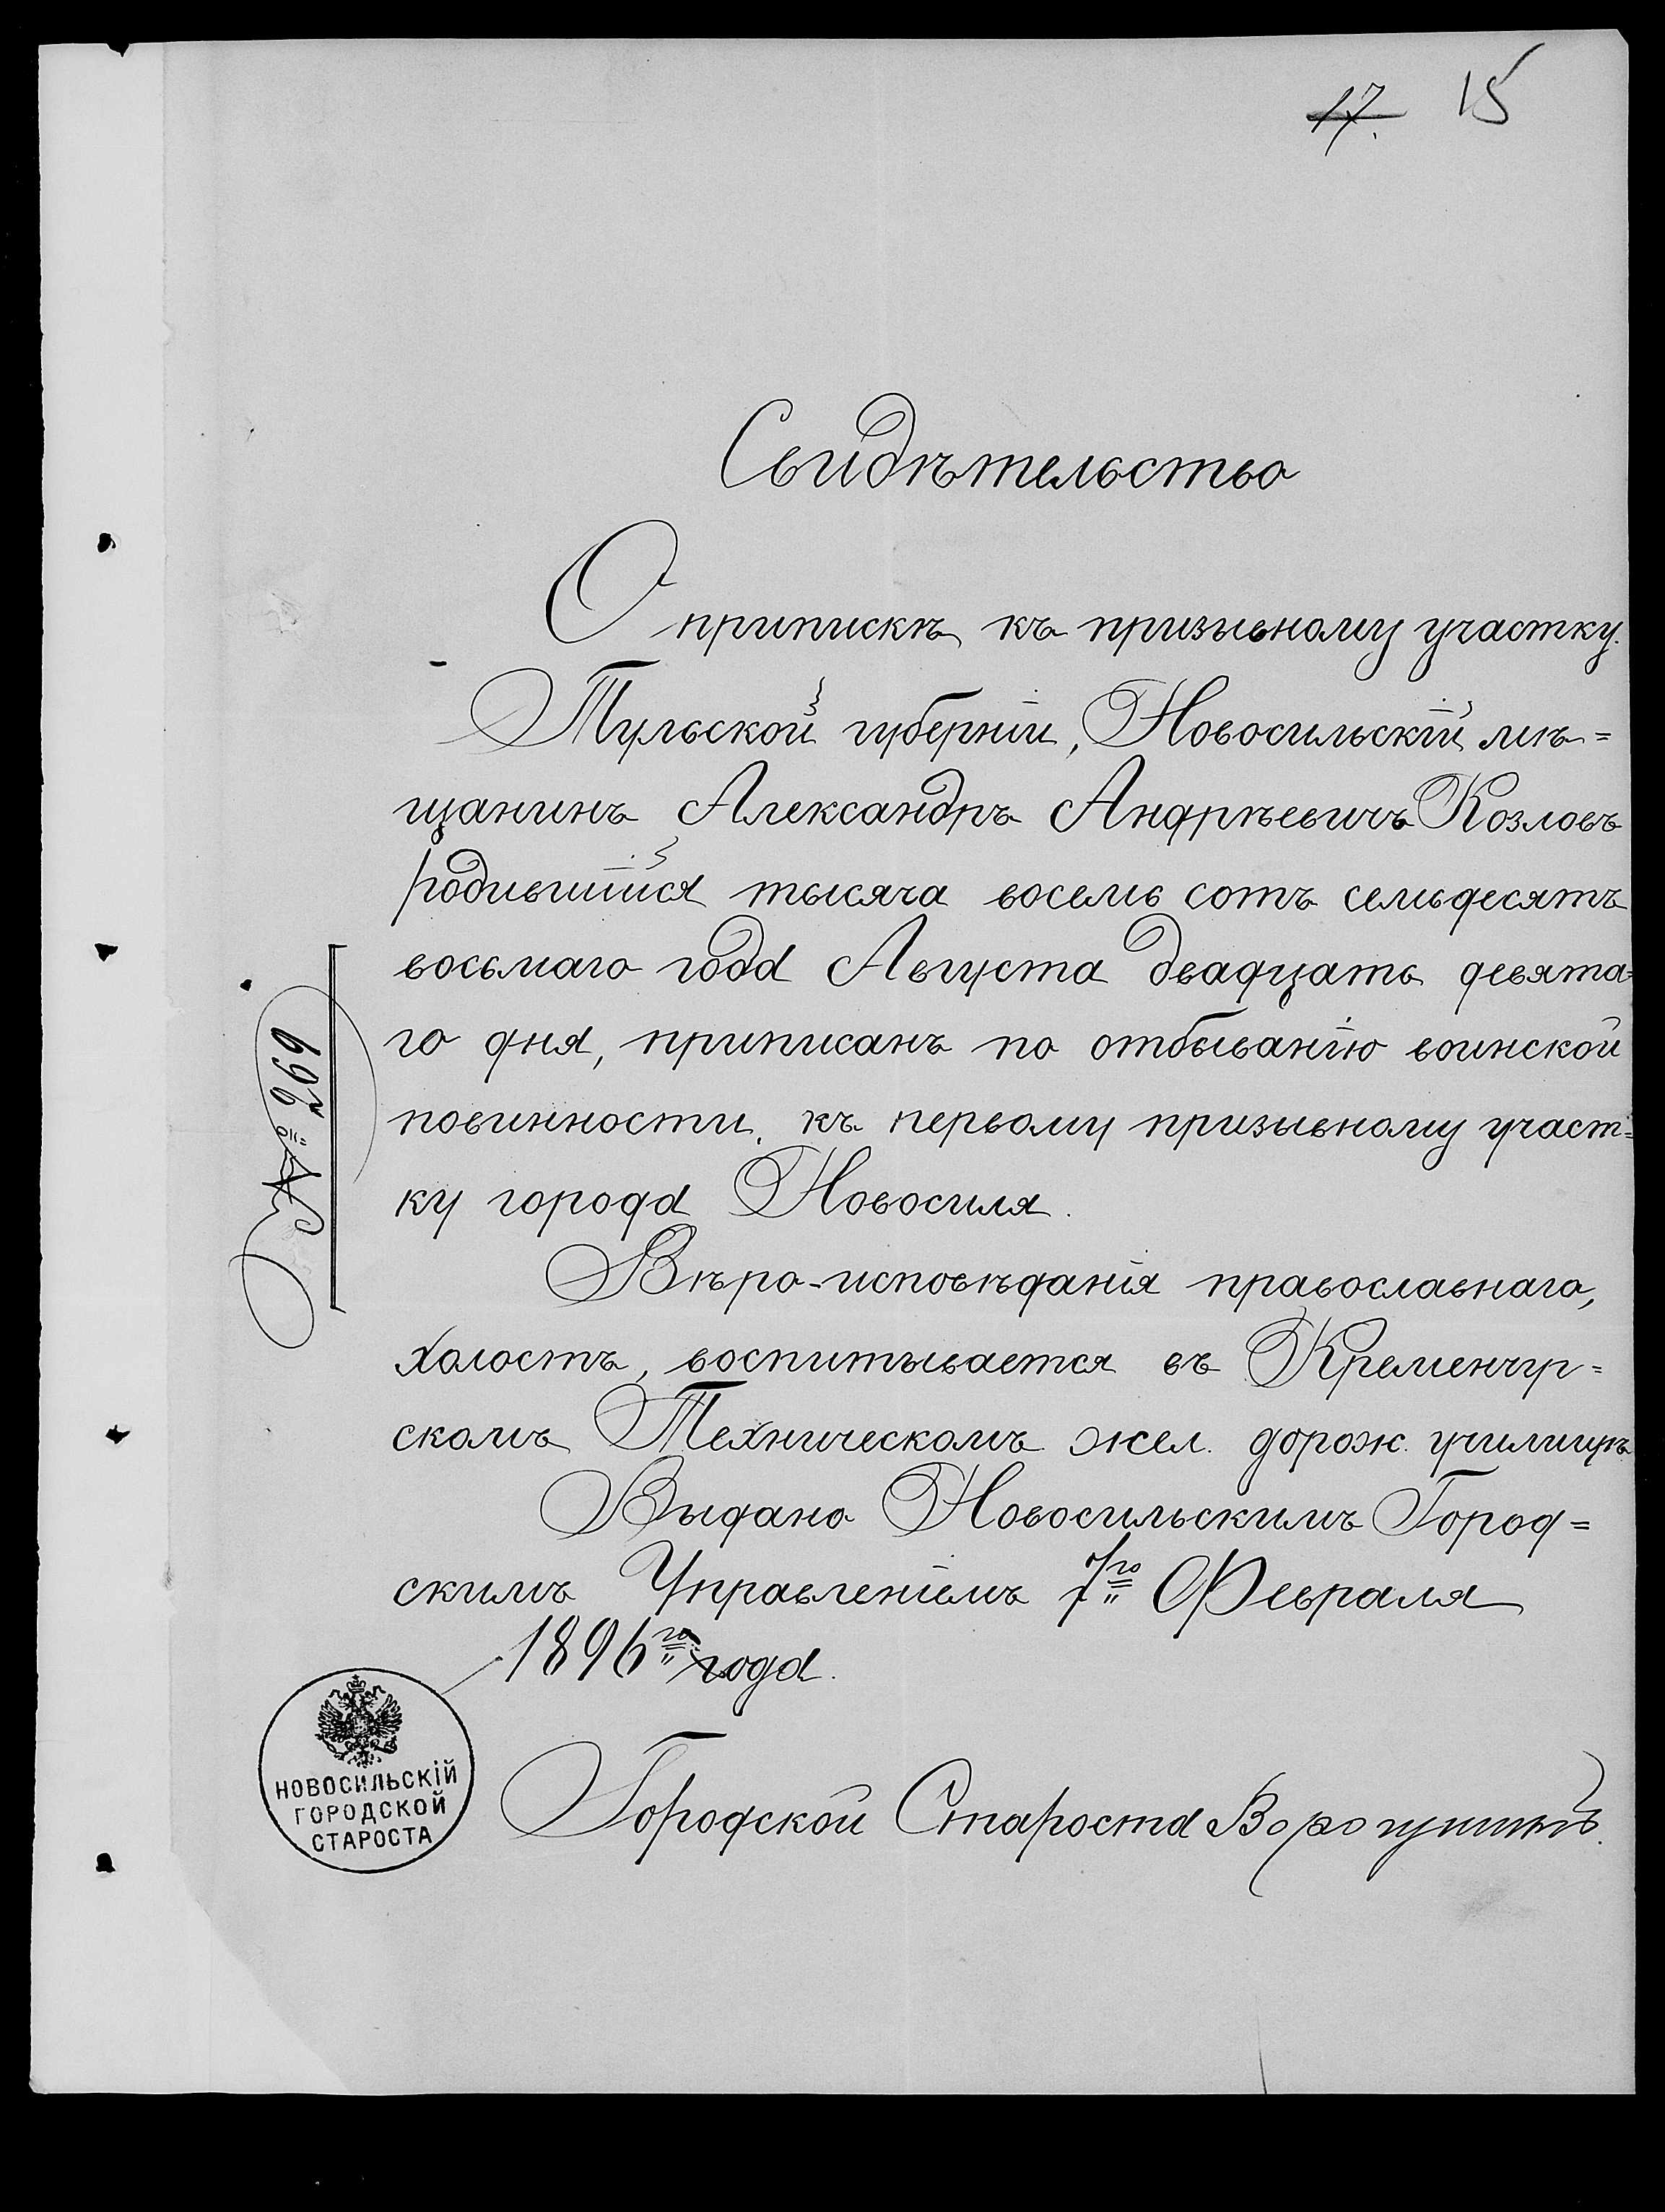 17. 15
Свидѣтельство
О припискѣ къ призывному участку.
Тульской губерніи, Новосильскій мѣ=
щанинъ Александръ Андрѣевичъ Козловъ
родившійся тысяча восемь сотъ семьдесятъ
восьмаго года Августа двадцать девята=
го дня, приписанъ по отбыванію воинской
повинности, къ первому призывному участ=
ку города Новосиля.
Вѣро-исповѣданія православнаго,
холостъ, воспитывается въ Кременчуг=
скомъ Техническомъ жел. дорож. училищѣ
Выдано Новосильскимъ Город=
скимъ Управленіемъ 7го Февраля
1896го года.
№ 699
НОВОСИЛЬСКІЙ
ГОРОДСКОЙ
СТАРОСТА
Городской Староста